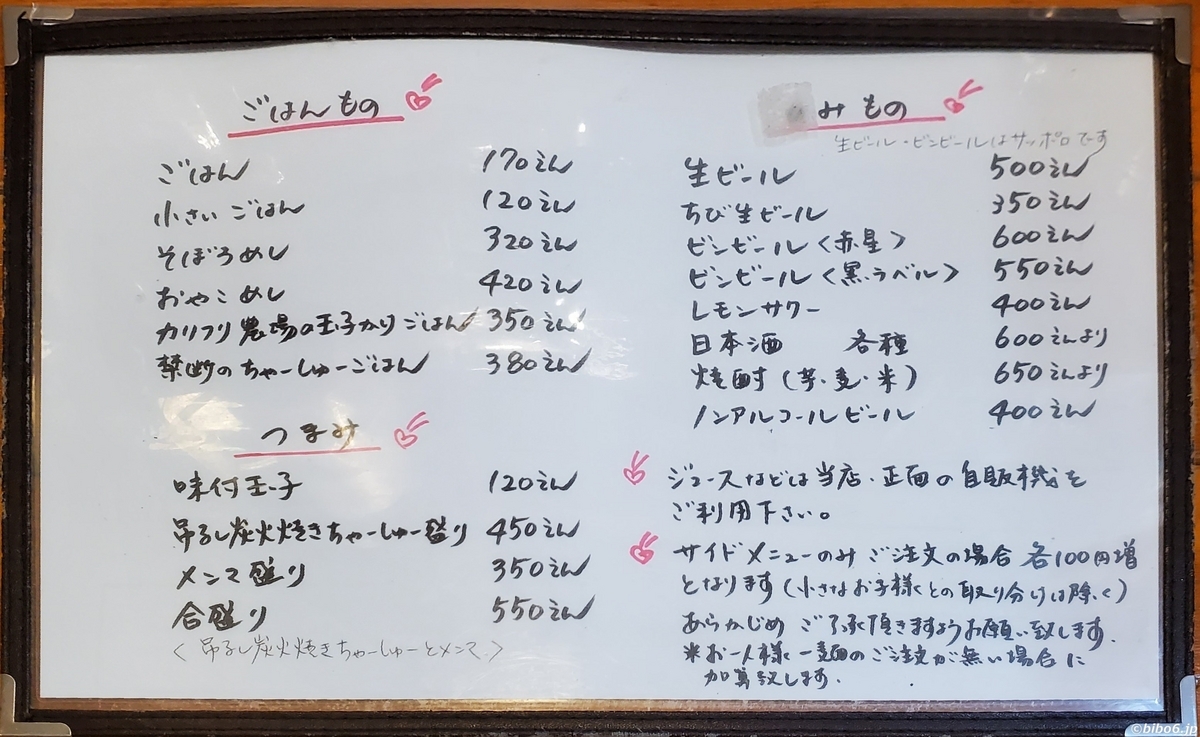 ごはんもの
ごはん 170えん
小さいごはん 120えん
そぼろめし 320えん
おやこめし 420えん
カリフリ農場の玉子かけごはん 350えん
禁断のちゃーしゅーごはん 380えん
つまみ
味付玉子 120えん
吊るし炭火焼きちゃーしゅー盛り 450えん
メンマ盛り 350えん
合盛り 550えん
〈吊るし炭火焼きちゃーしゅーとメンマ〉
みもの
生ビール・ビンビールはサッポロです
生ビール 500えん
ちび生ビール 350えん
ビンビール〈赤星〉 600えん
ビンビール〈黒ラベル〉 550えん
レモンサワー 400えん
日本酒 各種 600えんより
焼酎(芋・麦・米) 650えんより
ノンアルコールビール 400えん
ジュースなどは当店・正面の自販機を
ご利用下さい。
サイドメニューのみご注文の場合 各100円増
となります(小さなお子様との取り分けは除く)
あらかじめご了承頂きますようお願い致します.
※お一人様一麺のご注文が無い場合に
加算致します.
©bibo6.jp